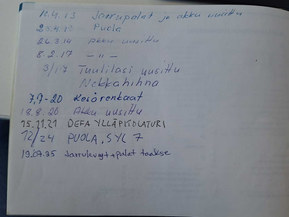 11.4.13 Jarrupalat ja akku uusittu
Puola
Akku uusittu
5.2.17 — " —
3/17 Tuulilasi uusittu
Nokkahihna
7.9-20 Kesärenkaat
Akku uusittu
15.11.21 DEFA YLLÄPITOLATURI
12/24 PUOLA, SYL 7
19.07.25 Jarrulevyt + palat taakse